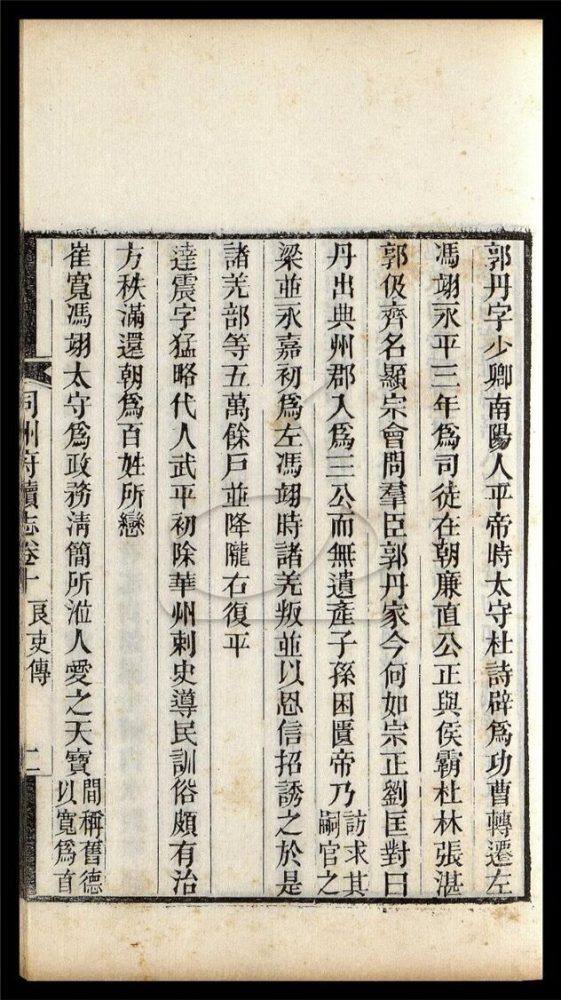 郭丹字少卿南陽人平帝時太守杜詩辟爲功曹轉遷左
馮翊永平三年爲司徒在朝廉直公正與侯霸杜林張湛
郭伋齊名顯宗會問羣臣郭丹家今何如宗正劉匡對曰
丹出典州郡入爲三公而無遺產子孫困匱帝乃訪求其嗣官之
梁並永嘉初爲左馮翊時諸羌叛並以恩信招誘之於是
諸羌部等五萬餘戶並降隴右復平
達震字猛略代人武平初除華州刺史導民訓俗頗有治
方秩滿還朝爲百姓所戀
崔寬馮翊太守爲政務淸簡所涖人愛之天寶間稱舊德以寬爲首
同州府續志卷十 良吏傳 二